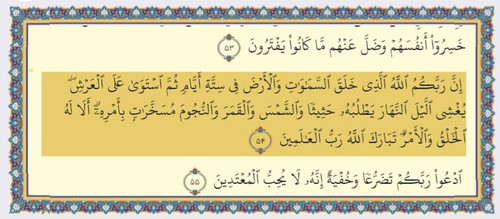 خَسِرُوٓا۟ أَنفُسَهُمْ وَضَلَّ عَنْهُم مَّا كَانُوا۟ يَفْتَرُونَ ٥٣
إِنَّ رَبَّكُمُ ٱللَّهُ ٱلَّذِى خَلَقَ ٱلسَّمَـٰوَٰتِ وَٱلْأَرْضَ فِى سِتَّةِ أَيَّامٍ ثُمَّ ٱسْتَوَىٰ عَلَى ٱلْعَرْشِ ۖ
يُغْشِى ٱلَّيْلَ ٱلنَّهَارَ يَطْلُبُهُۥ حَثِيثًا وَٱلشَّمْسَ وَٱلْقَمَرَ وَٱلنُّجُومَ مُسَخَّرَٰتٍۭ بِأَمْرِهِۦٓ ۗ أَلَا لَهُ
ٱلْخَلْقُ وَٱلْأَمْرُ ۗ تَبَارَكَ ٱللَّهُ رَبُّ ٱلْعَـٰلَمِينَ ٥٤
ٱدْعُوا۟ رَبَّكُمْ تَضَرُّعًا وَخُفْيَةً ۚ إِنَّهُۥ لَا يُحِبُّ ٱلْمُعْتَدِينَ ٥٥